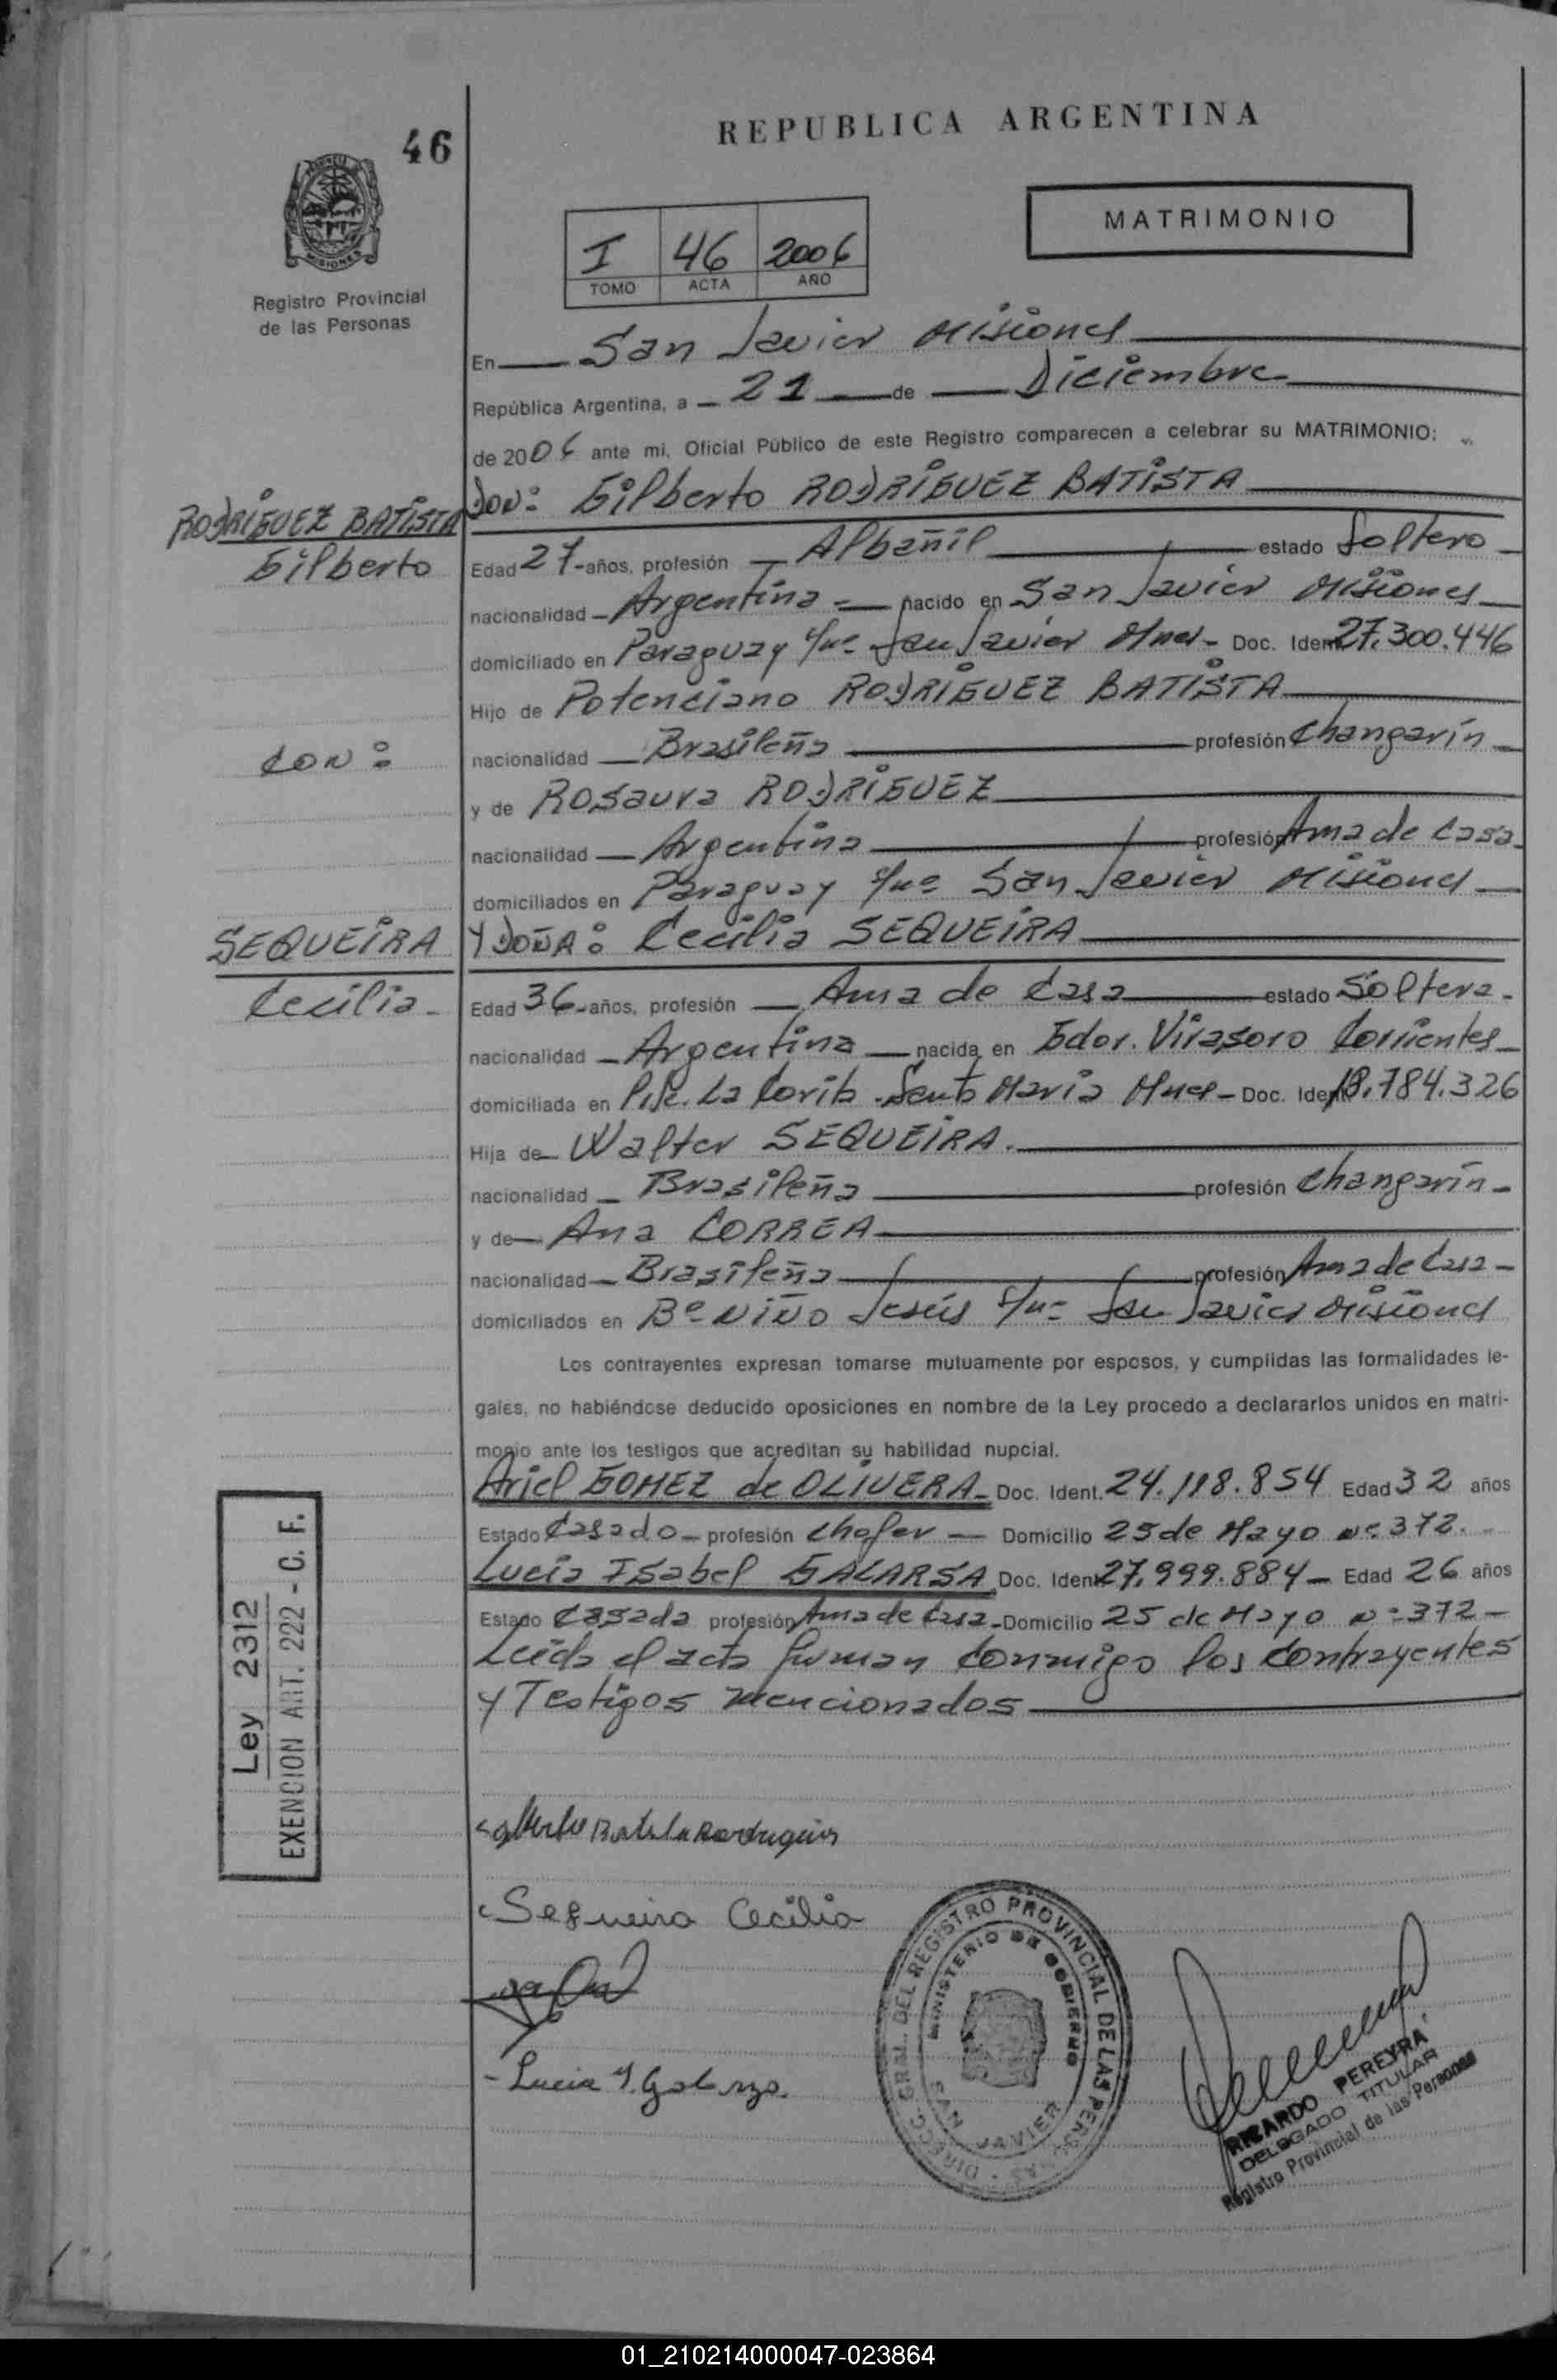 REPUBLICA ARGENTINA
46
MATRIMONIO
I 46 2006
TOMO ACTA AÑO
MISIONES
Registro Provincial
de las Personas
En San Javier Misiones
República Argentina, a 21 de Diciembre
de 2006 ante mi, Oficial Público de este Registro comparecen a celebrar su MATRIMONIO:
RODRIGUEZ BATISTA
Gilberto
DON: Gilberto RODRIGUEZ BATISTA
Edad 27 años, profesión Albañil estado Soltero
nacionalidad Argentina nacido en San Javier Misiones
domiciliado en Paraguay s/nº San Javier Mnes Doc. Ident. 27.300.446
Hijo de Potenciano RODRIGUEZ BATISTA
CON:
nacionalidad Brasileña profesión Changarín
y de Rosaura RODRIGUEZ
nacionalidad Argentina profesión Ama de Casa
domiciliados en Paraguay s/nº San Javier Misiones
SEQUEIRA
Cecilia
Y DOÑA: Cecilia SEQUEIRA
Edad 36 años, profesión Ama de Casa estado Soltera
nacionalidad Argentina nacida en Gdor. Virasoro Corrientes
domiciliada en La Corita Santa María Mnes Doc. Ident. 18.784.326
Hija de Walter SEQUEIRA.
nacionalidad Brasileña profesión Changarín
y de Ana CORREA
nacionalidad Brasileña profesión Ama de Casa
domiciliados en Bº NIÑO Jesús s/nº San Javier Misiones
Los contrayentes expresan tomarse mutuamente por esposos, y cumplidas las formalidades le-
gales, no habiéndose deducido oposiciones en nombre de la Ley procedo a declararlos unidos en matri-
monio ante los testigos que acreditan su habilidad nupcial.
Ariel GOMEZ de OLIVERA Doc. Ident. 24.118.854 Edad 32 años
Estado Casado profesión Chofer Domicilio 25 de Mayo nº 372.
Lucia Isabel GALARSA Doc. Ident. 27.999.884 Edad 26 años
Estado Casada profesión Ama de Casa Domicilio 25 de Mayo nº 372
Leída el acta firman conmigo los contrayentes
y Testigos mencionados
Ley 2312
EXENCION ART. 222 - C. F.
Batista Rodriguez
Sequeira Cecilia
Lucia I. Galarza.
DIRECC. GRAL. DEL REGISTRO PROVINCIAL DE LAS PERSONAS
MINISTERIO DE GOBIERNO
SAN JAVIER
RICARDO PEREYRA
DELEGADO TITULAR
Registro Provincial de las Personas
01_210214000047-023864